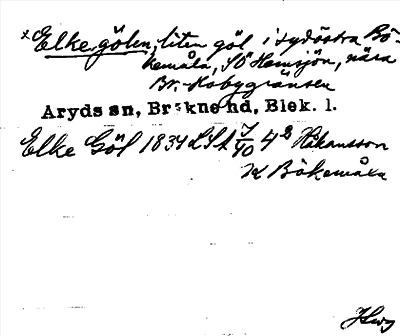 × Elkegölen, liten göl i sydöstra Bö-
kemåla, SÖ Hemsjön, nära
Br.-Hobygränsen
Aryds sn, Bräkne hd, Blek. l.
Elke Göl 1834 LSA 7/40 4² Håkansson
K Bökemåla